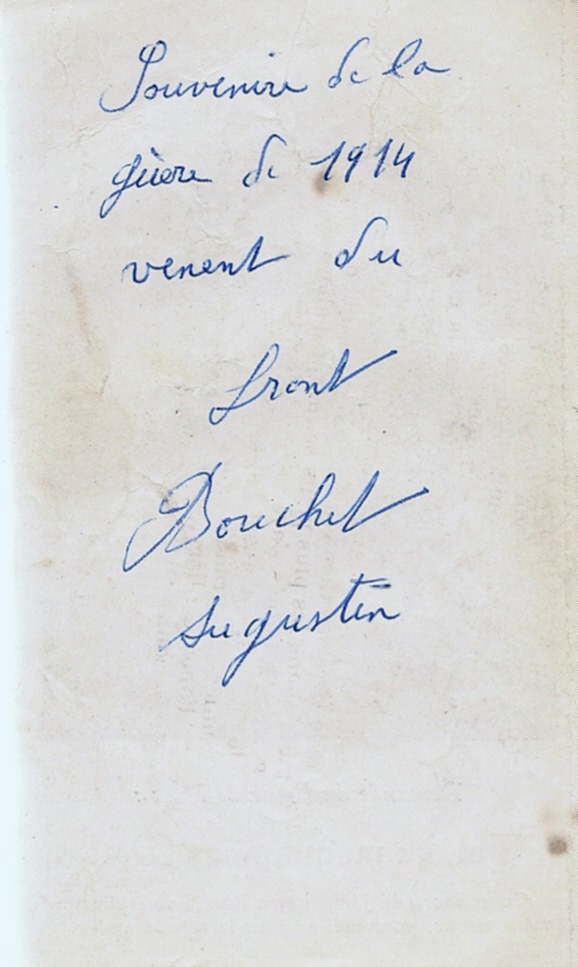 Souvenire de la
guère de 1914
venent du
front
Bouchet
Augustin